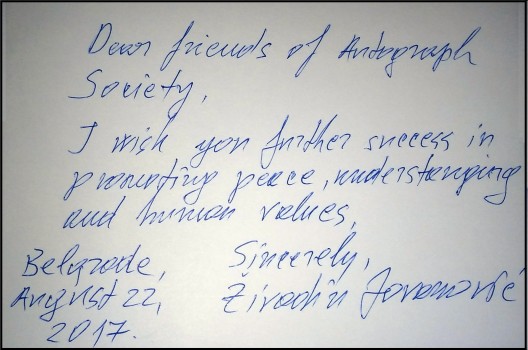 Dear friends of Autograph
Society,
I wish you further success in
promoting peace, understanging
and human values,
Sincerely,
Belgrade,
August 22,
2017.
Živadin Jovanović